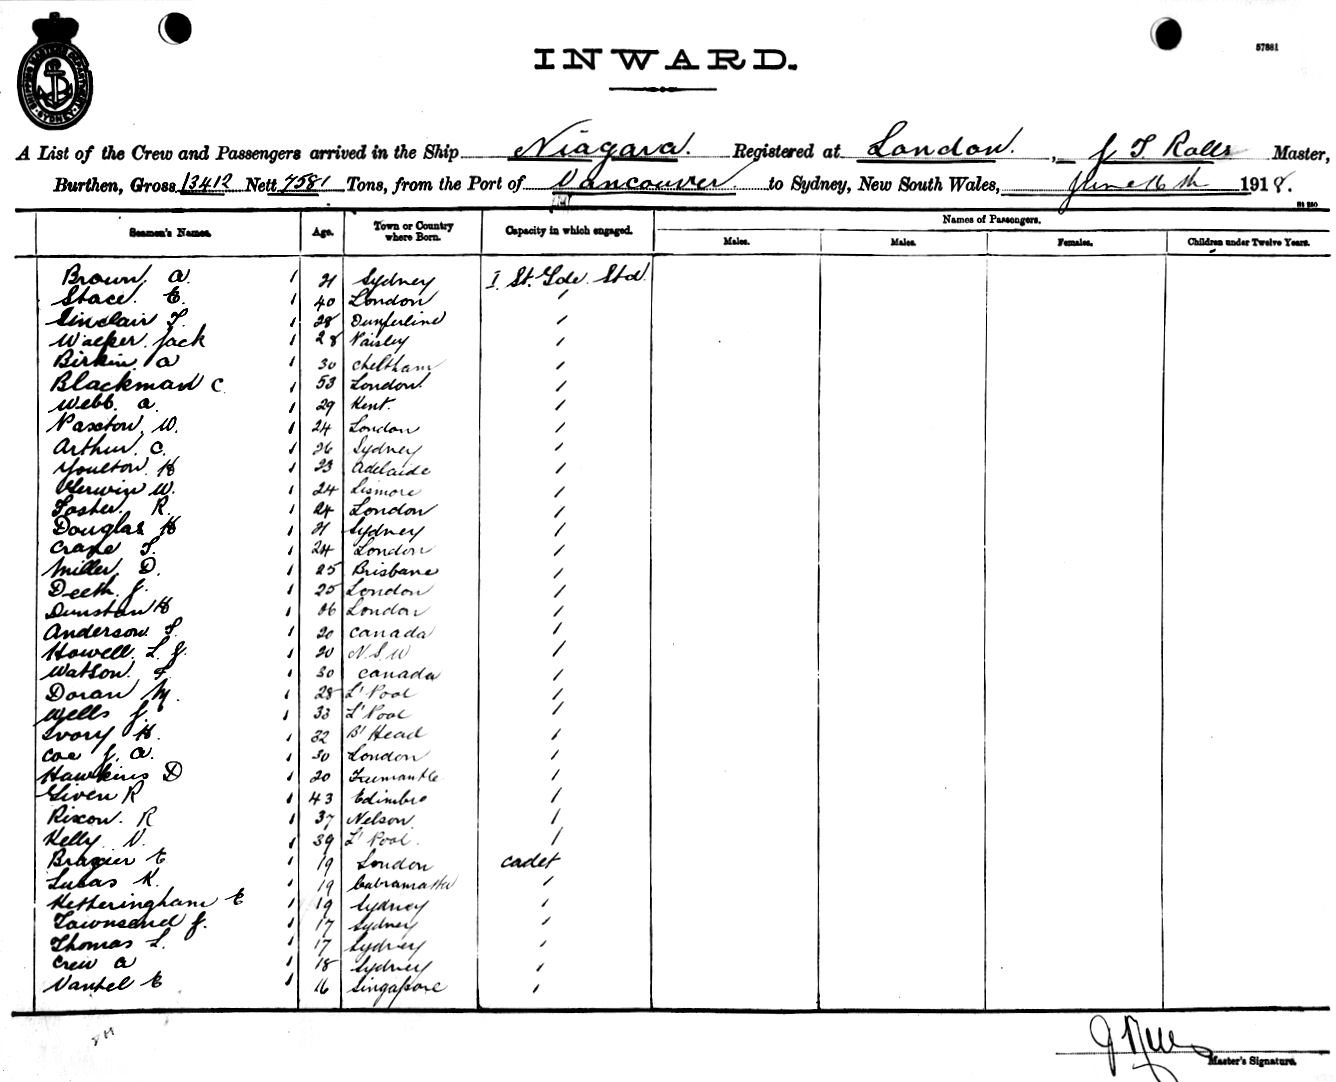 57881
INWARD.
SHIPPING MASTER'S DEPARTMENT SYDNEY
A List of the Crew and Passengers arrived in the Ship Niagara. Registered at London. , J T Rolls Master,
Burthen, Gross 13412 Nett 7581 Tons, from the Port of Vancouver to Sydney, New South Wales, June 16th 1918.
Seamen's Names. Age. Town or Country where Born. Capacity in which engaged. Names of Passengers.
Males. Males. Females. Children under Twelve Years.
Brown. A. 1 21 Sydney I. St. Gde. Std.
Stace. E. 1 40 London "
Sinclair T. 1 28 Dunferline "
Walker. Jack 1 28 Paisley "
Birkin. A 1 30 Cheltham "
Blackman C. 1 53 London. "
Webb. A. 1 29 Kent. "
Paxton. W. 1 24 London "
Arthur. C. 1 26 Sydney "
Youlton. H 1 23 Adelaide "
W. 1 24 Lismore "
Foster. R. 1 24 London "
Douglas H 1 21 Sydney "
Crane T. 1 24 London "
Miller. D. 1 25 Brisbane "
Deeth. J. 1 25 London "
Dunstan H 1 London "
Anderson. T. 1 20 Canada "
Howell. L. J. 1 20 N.S.W "
Watson. F 1 30 Canada "
Doran M. 1 28 L'Pool "
Wells J. 1 33 L'Pool "
Ivory H. 1 32 B'Head "
Coe J. A. 1 30 London "
Hawkins D 1 20 Freemantle "
Given R 1 43 Edinbro "
Rixon. R 1 37 Nelson "
Kelly. V. 1 39 L'Pool. "
Brazier E 1 19 London Cadet
Lucas K. 1 19 Cabramatta "
Hetheringham E 1 19 Sydney "
Townsend J. 1 17 Sydney "
Thomas L. 1 17 Sydney "
Crew A 1 18 Sydney "
E 1 16 Singapore "
Master's Signature.